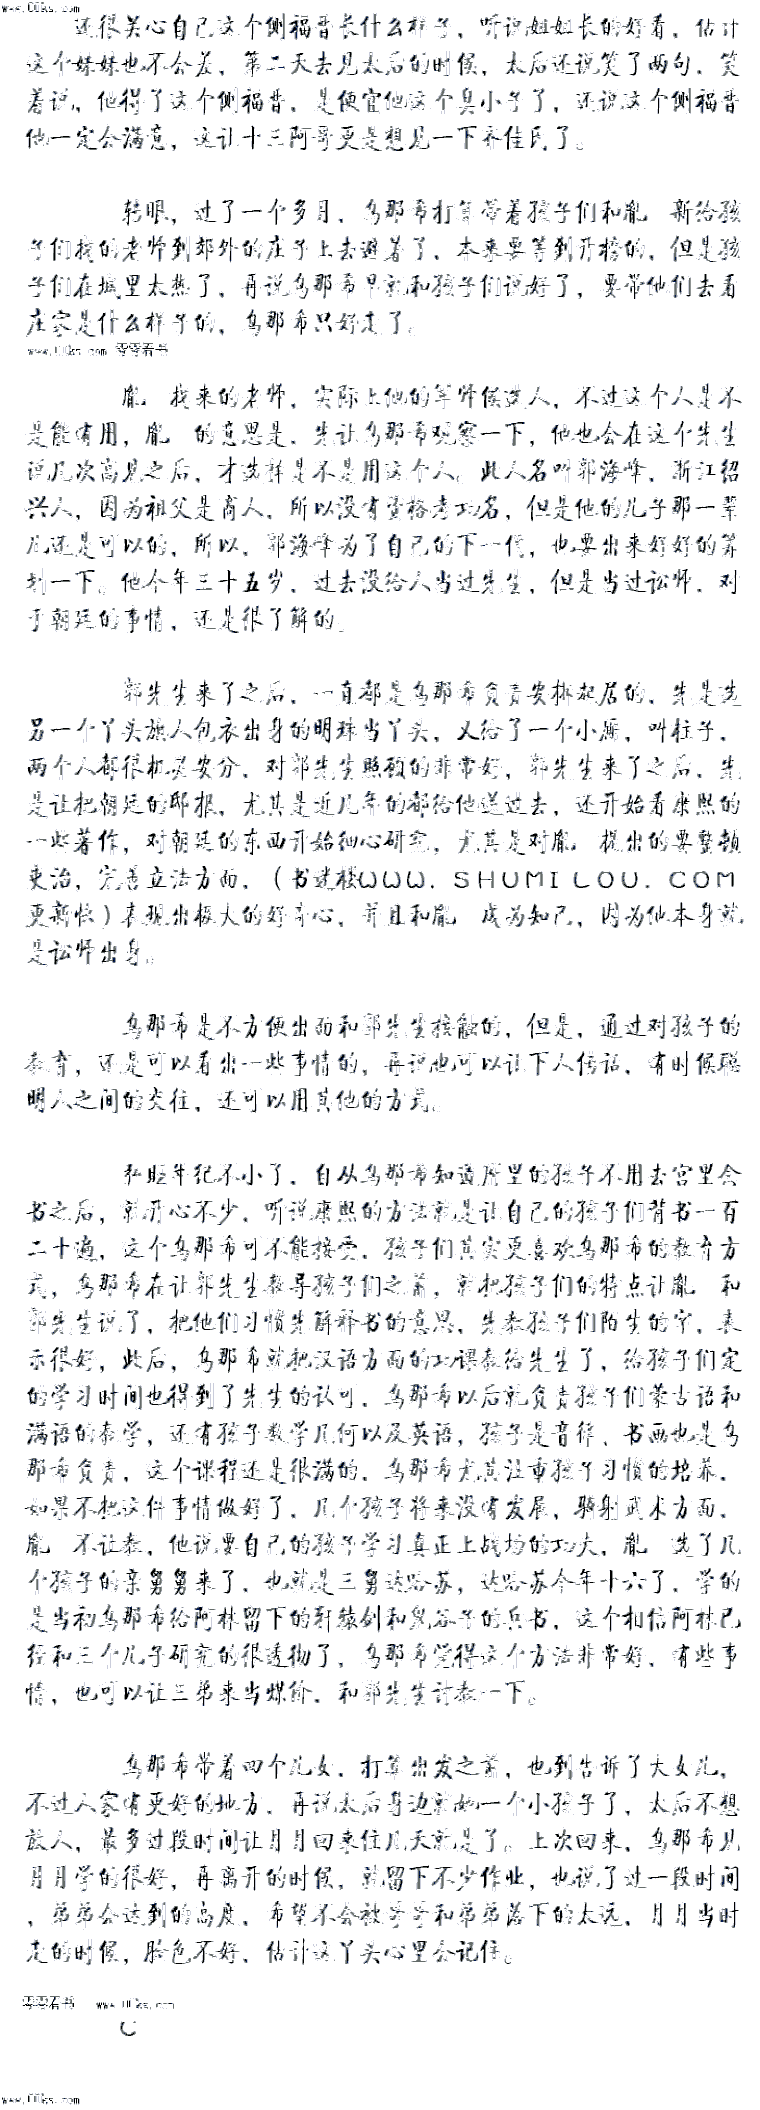 www.00ks.com
还很关心自己这个侧福晋长什么样子，听说姐姐长的好看，估计
这个妹妹也不会差，第二天去见太后的时候，太后还说笑了两句，笑
着说，他得了这个侧福晋，是便宜他这个臭小子了，还说这个侧福晋
他一定会满意，这让十三阿哥更是想见一下齐佳氏了。
转眼，过了一个多月，乌那希打算带着孩子们和胤 新给孩
子们找的老师到郊外的庄子上去避暑了，本来要等到开榜的，但是孩
子们在城里太热了，再说乌那希早就和孩子们说好了，要带他们去看
庄家是什么样子的，乌那希只好走了。
www.00ks.com 零零看书
胤 找来的老师，实际上他的军师候选人，不过这个人是不
是能有用，胤 的意思是，先让乌那希观察一下，他也会在这个先生
说几次高见之后，才选择是不是用这个人。此人名叫郭海峰，浙江绍
兴人，因为祖父是商人，所以没有资格考功名，但是他的儿子那一辈
儿还是可以的，所以，郭海峰为了自己的下一代，也要出来好好的筹
划一下。他今年三十五岁，过去没给人当过先生，但是当过讼师，对
于朝廷的事情，还是很了解的。
郭先生来了之后，一直都是乌那希负责安排起居的，先是选
另一个丫头旗人包衣出身的明珠当丫头，又给了一个小厮，叫柱子，
两个人都很机灵安分，对郭先生照顾的非常好，郭先生来了之后，先
是让把朝廷的邸报，尤其是近几年的都给他送过去，还开始看康熙的
一些著作，对朝廷的东西开始细心研究，尤其是对胤 提出的要整顿
吏治，完善立法方面，（书迷楼ＷＷＷ．ＳＨＵＭＩＬＯＵ．ＣＯＭ
更新快）表现出极大的好奇心，并且和胤 成为知己，因为他本身就
是讼师出身。
乌那希是不方便出面和郭先生接触的，但是，通过对孩子的
教育，还是可以看出一些事情的，再说也可以让下人传话，有时候聪
明人之间的交往，还可以用其他的方式。
弘旺年纪不小了，自从乌那希知道府里的孩子不用去宫里念
书之后，就开心不少，听说康熙的方法就是让自己的孩子们背书一百
二十遍，这个乌那希可不能接受，孩子们其实更喜欢乌那希的教育方
式，乌那希在让郭先生教导孩子们之前，就把孩子们的特点让胤 和
郭先生说了，把他们习惯先解释书的意思，先教孩子们陌生的字，表
示很好，此后，乌那希就把汉语方面的功课教给先生了，给孩子们定
的学习时间也得到了先生的认可，乌那希以后就负责孩子们蒙古语和
满语的教学，还有孩子数学几何以及英语，孩子是音律、书画也是乌
那希负责，这个课程还是很满的，乌那希尤其注重孩子习惯的培养，
如果不把这件事情做好了，几个孩子将来没有发展，骑射武术方面，
胤 不让教，他说要自己的孩子学习真正上战场的功夫，胤 选了几
个孩子的亲舅舅来了，也就是三舅达哈苏，达哈苏今年十六了，学的
是当初乌那希给阿林留下的轩辕剑和鬼谷子的兵书，这个相信阿林已
经和三个儿子研究的很透彻了，乌那希觉得这个方法非常好，有些事
情，也可以让三弟来当媒介，和郭先生讨教一下。
乌那希带着四个儿女，打算出发之前，也到告诉了大女儿，
不过人家有更好的地方，再说太后身边就她一个小孩子了，太后不想
放人，最多过段时间让月月回来住几天就是了。上次回来，乌那希见
月月学的很好，再离开的时候，就留下不少作业，也说了过一段时间
，弟弟会达到的高度，希望不会被哥哥和弟弟落下的太远，月月当时
走的时候，脸色不好，估计这丫头心里会记住。
零零看书 www.00ks.com
www.00ks.com